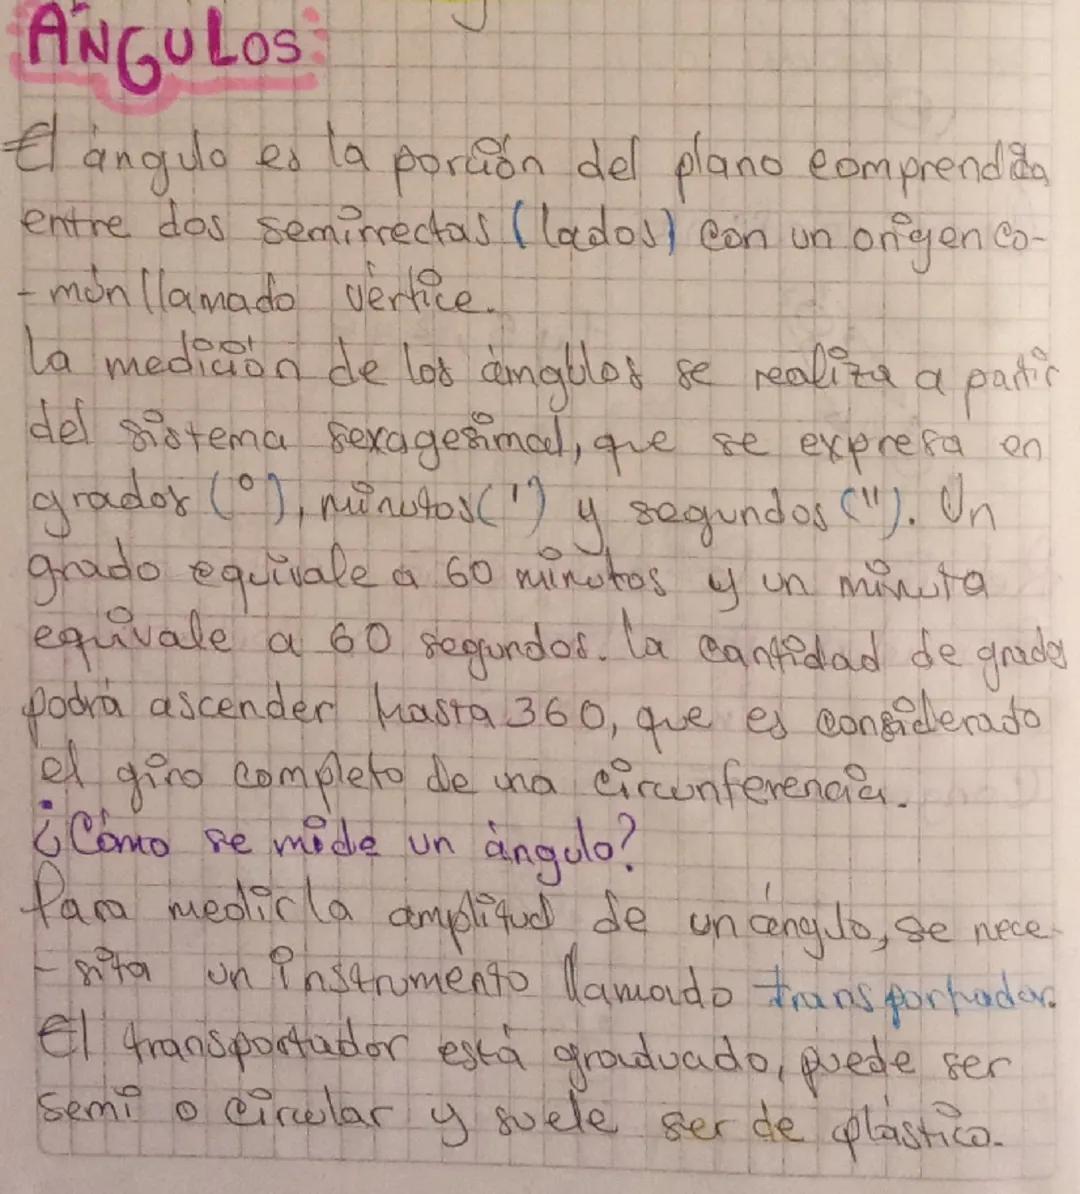 ÁNGULOS:
El ángulo es la porción del plano comprendida
entre dos semirrectas (lados) con un origen co-
-món llamado vértice.
La medición de los ángulos se realiza a partir
del sistema sexagesimal, que se expresa en
grados (°), minutos (') y segundos (''). Un
grado equivale a 60 minutos y un minuta
equivale a 60 segundos. la cantidad de grados
podrá ascender hasta 360, que es considerado
el giro completo de una circunferencia.
¿Cómo se mide un ángulo?
Para medir la amplitud de un ángulo, se nece-
-sita un instrumento llamado transportador.
El transportador está graduado, puede ser
semi o circular y suele ser de plástico.